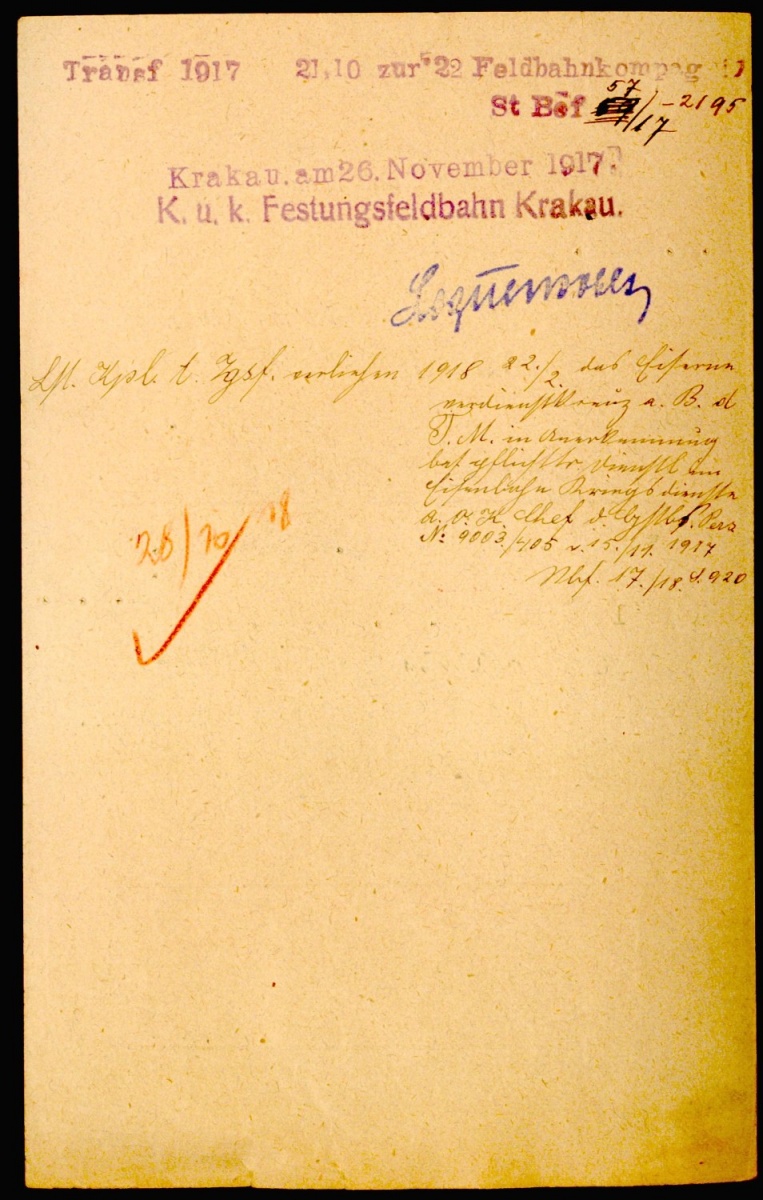 Transf 1917 21.10 zur 22 Feldbahnkompag
St Bef 57/17 - 2195
Krakau, am 26. November 1917.
K. u. k. Festungsfeldbahn Krakau.
Lst. Kpl. t. Zgsf. verliehen 1918 22./2. das Eiserne
verdienstkreuz a. B. d
T. M. in Anerkennung
bes pflichttr dienstl im
Eisenbahn Kriegsdienste
a. o. K. Chef d. Gstbs. Pers
№ 9003/405 v. 15./11. 1917
Nbf. 17./18. S. 920
28/10 18